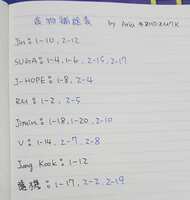 by Aria
Jin: 1-10, 2-12
SUGA: 1-4, 1-6, 2-15, 2-17
J-HOPE: 1-8, 2-4
RM: 1-2, 2-5
Jimin: 1-18, 1-20, 2-10
V: 1-14, 2-7, 2-8
Jung Kook: 1-12
1-17, 2-2, 2-19